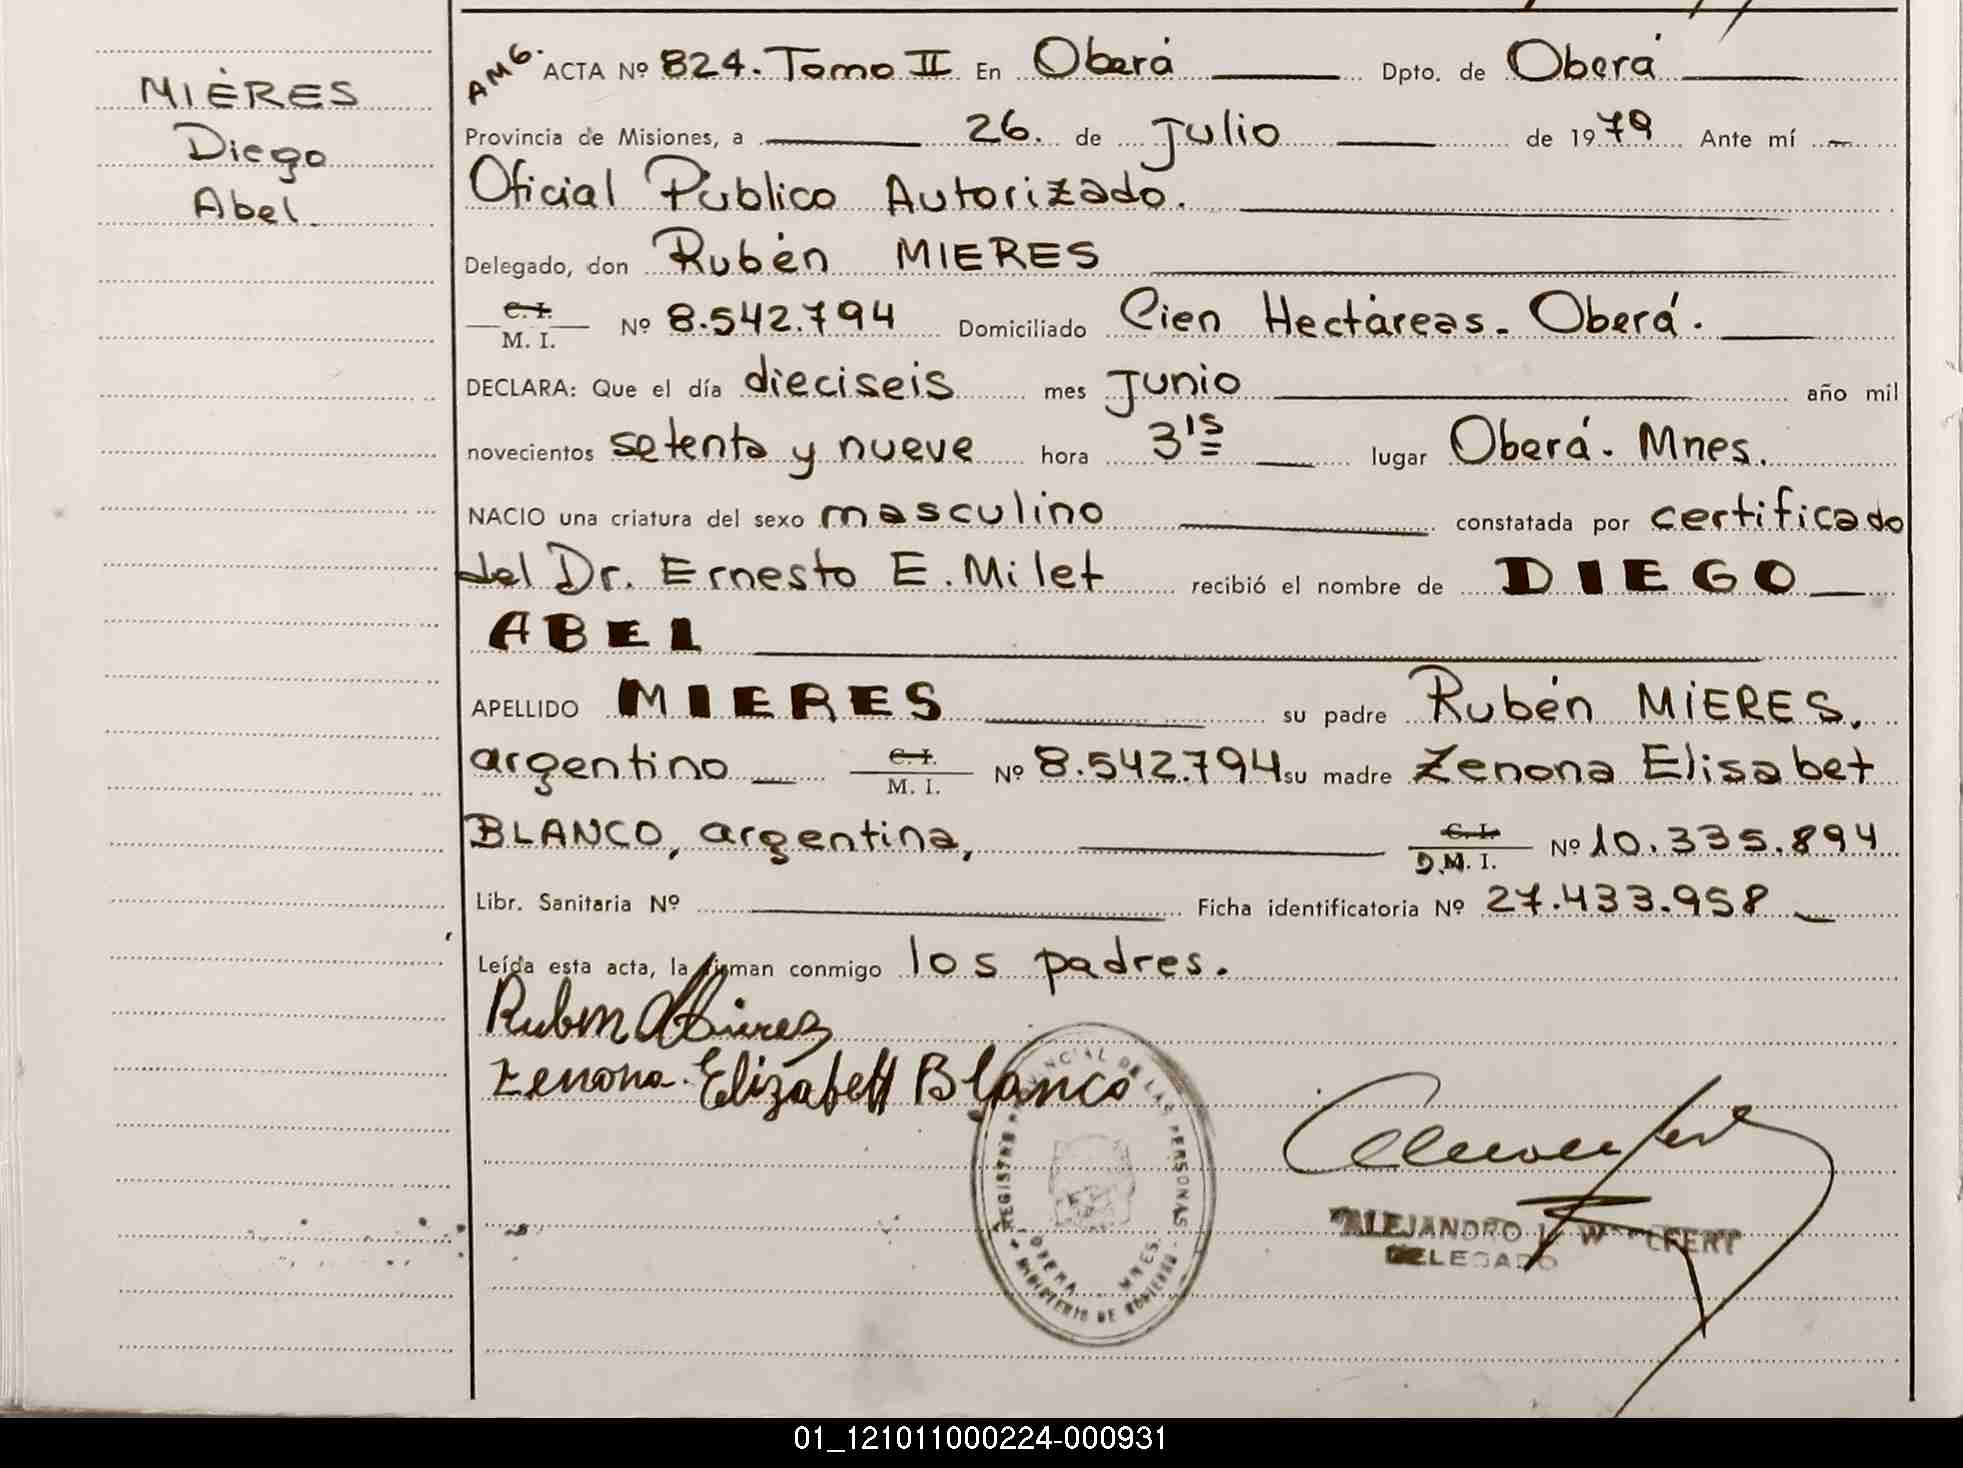 MIÉRES
Diego
Abel
AMG. ACTA Nº 824. Tomo II En Oberá Dpto. de Oberá
Provincia de Misiones, a 26. de Julio de 1979 Ante mí
Oficial Público Autorizado.
Delegado, don Rubén MIERES
C. I.
M. I. Nº 8.542.794 Domiciliado Cien Hectáreas - Oberá.
DECLARA: Que el día dieciseis mes Junio año mil
novecientos setenta y nueve hora 3 15 lugar Oberá - Mnes.
NACIO una criatura del sexo masculino constatada por certificado
del Dr. Ernesto E. Milet recibió el nombre de DIEGO
ABEL
APELLIDO MIERES su padre Rubén MIERES,
argentino C. I. M. I. Nº 8.542.794 su madre Zenona Elisabet
BLANCO, argentina, C. I. D.M. I. Nº 10.335.894
Libr. Sanitaria Nº Ficha identificatoria Nº 27.433.958
Leída esta acta, la firman conmigo los padres.
Ruben Mieres
Zenona Elizabett Blanco
REGISTRO PROVINCIAL DE LAS PERSONAS
OBERA - MNES.
MINISTERIO DE GOBIERNO
ALEJANDRO
DELEGADO
01_121011000224-000931